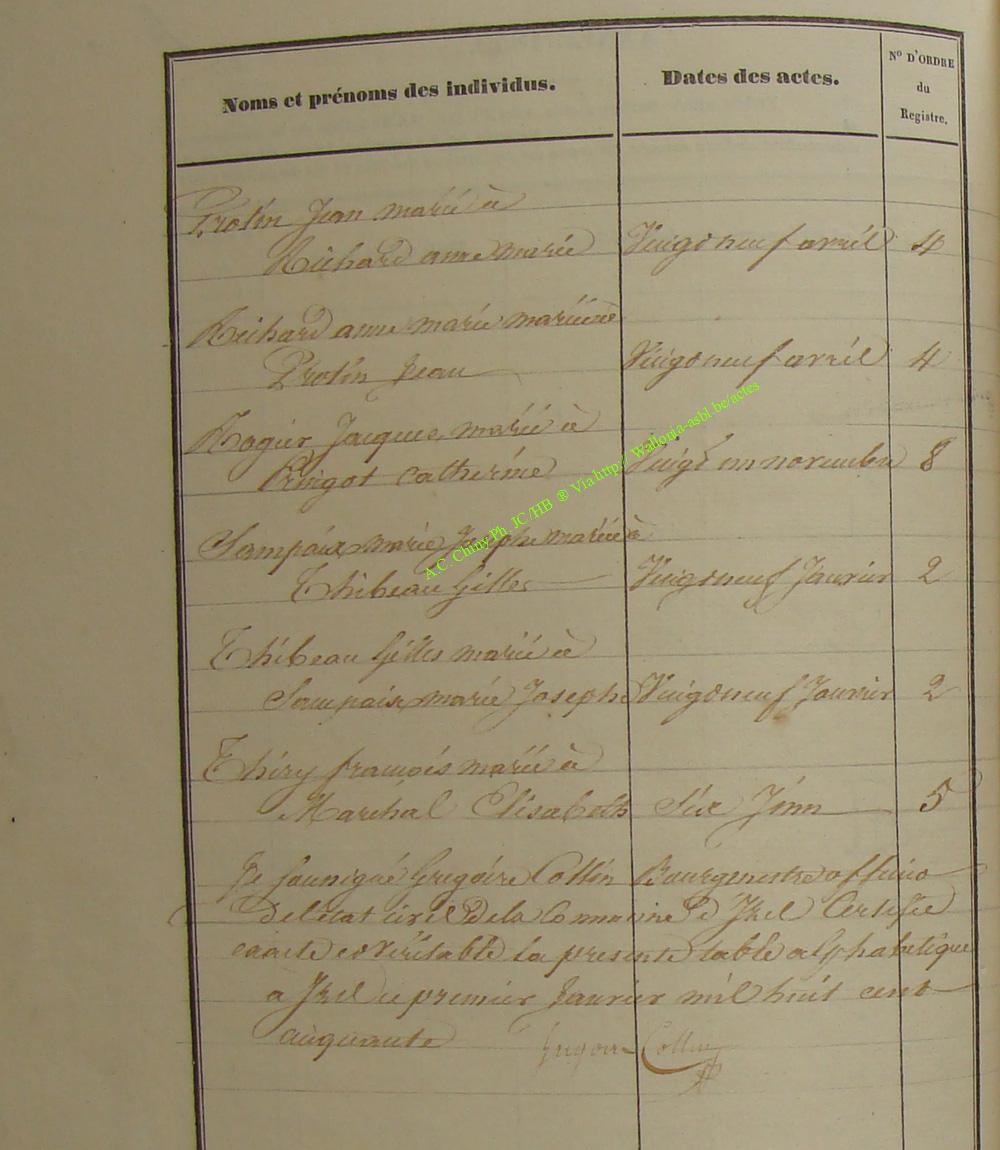 Noms et prénoms des individus. Dates des actes. N° D'ORDRE du Registre.
Protin Jean marié à
Richard anne marie Vingt neuf avril 4
Richard anne marie mariée à
Protin Jean Vingt neuf avril 4
Rogier Jacques marié à
Pringot catherine Vingt un novembre 8
Sampaix marie Joseph mariée à
Thibeau Gilles Vingt neuf Janvier 2
Thibeau Gilles marié à
Sampaix marie Joseph Vingt neuf Janvier 2
Thiry francois marié à
Maréchal Elisabeth Six Juin 5
Je Sousigné Grégoire Collin Bourgmestre officié
de l'état civil de la Commune d'Izel Certifie
exacte et véritable la présente table alphabétique
a Izel ce premier Janvier mil huit cent
cinquante Grégoire Collin
A.C. Chiny Ph. JC/HB ® Via http://Wallonia-asbl.be/actes